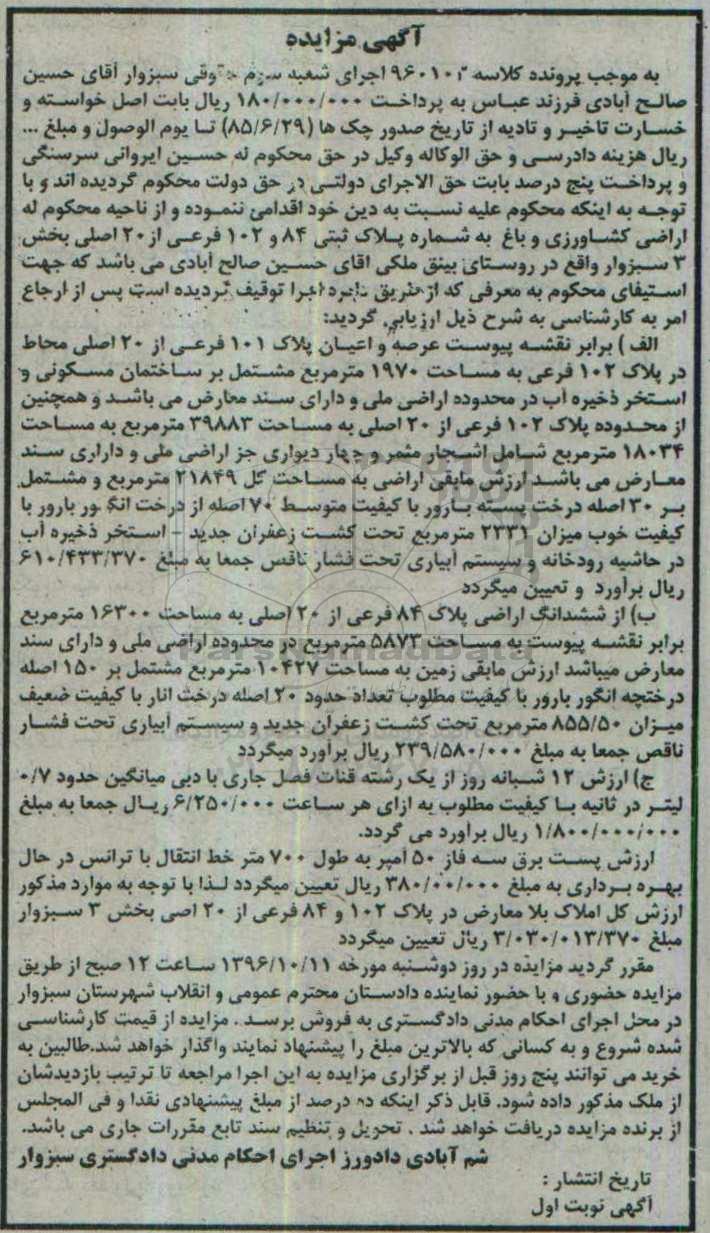 آگهی مزایده
به موجب پرونده کلاسه ۹۶۰۱۰۲ اجرای شعبه سوم حقوقی سبزوار آقای حسین
صالح آبادی فرزند عباس به پرداخت ۱۸۰/۰۰۰/۰۰۰ ریال بابت اصل خواسته و
خسارت تاخیر و تادیه از تاریخ صدور چک ها (۸۵/۶/۲۹) تا یوم الوصول و مبلغ ...
ریال هزینه دادرسی و حق الوکاله وکیل در حق محکوم له حسین ایروانی سرسنگی
و پرداخت پنج درصد بابت حق الاجرای دولتی در حق دولت محکوم گردیده اند و با
توجه به اینکه محکوم علیه نسبت به دین خود اقدامی ننموده و از ناحیه محکوم له
اراضی کشاورزی و باغ به شماره پلاک ثبتی ۸۴ و ۱۰۲ فرعی از ۲۰ اصلی بخش
۳ سبزوار واقع در روستای بینق ملکی اقای حسین صالح آبادی می باشد که جهت
استیفای محکوم به معرفی که از طریق دایره اجرا توقیف گردیده است پس از ارجاع
امر به کارشناسی به شرح ذیل ارزیابی گردید:
الف ) برابر نقشه پیوست عرصه و اعیان پلاک ۱۰۱ فرعی از ۲۰ اصلی محاط
در پلاک ۱۰۲ فرعی به مساحت ۱۹۷۰ مترمربع مشتمل بر ساختمان مسکونی و
استخر ذخیره آب در محدوده اراضی ملی و دارای سند معارض می باشد و همچنین
از محدوده پلاک ۱۰۲ فرعی از ۲۰ اصلی به مساحت ۳۹۸۸۳ مترمربع به مساحت
۱۸۰۳۴ مترمربع شامل اشجار مثمر و چهار دیواری جز اراضی ملی و داراری سند
معارض می باشد ارزش مابقی اراضی به مساحت کل ۲۱۸۴۹ مترمربع و مشتمل
بر ۳۰ اصله درخت پسته بارور با کیفیت متوسط ۷۰ اصله از درخت انگور بارور با
کیفیت خوب میزان ۲۳۳۱ مترمربع تحت کشت زعفران جدید - استخر ذخیره آب
در حاشیه رودخانه و سیستم آبیاری تحت فشار ناقص جمعا به مبلغ ۶۱۰/۴۳۳/۳۷۰
ریال برآورد و تعیین میگردد
ب) از ششدانگ اراضی پلاک ۸۴ فرعی از ۲۰ اصلی به مساحت ۱۶۳۰۰ مترمربع
برابر نقشه پیوست به مساحت ۵۸۷۳ مترمربع در محدوده اراضی ملی و دارای سند
معارض میباشد ارزش مابقی زمین به مساحت ۱۰۴۲۷ مترمربع مشتمل بر ۱۵۰ اصله
درختچه انگور بارور با کیفیت مطلوب تعداد حدود ۲۰ اصله درخت انار با کیفیت ضعیف
میزان ۸۵۵/۵۰ مترمربع تحت کشت زعفران جدید و سیستم آبیاری تحت فشار
ناقص جمعا به مبلغ ۲۳۹/۵۸۰/۰۰۰ ریال برآورد میگردد
ج) ارزش ۱۲ شبانه روز از یک رشته قنات فصل جاری با دبی میانگین حدود ۰/۷
لیتر در ثانیه با کیفیت مطلوب به ازای هر ساعت ۶/۲۵۰/۰۰۰ ریال جمعا به مبلغ
۱/۸۰۰/۰۰۰/۰۰۰ ریال برآورد می گردد.
ارزش پست برق سه فاز ۵۰ آمپر به طول ۷۰۰ متر خط انتقال با ترانس در حال
بهره برداری به مبلغ ۳۸۰/۰۰/۰۰۰ ریال تعیین میگردد لذا با توجه به موارد مذکور
ارزش کل املاک بلا معارض در پلاک ۱۰۲ و ۸۴ فرعی از ۲۰ اصی بخش ۳ سبزوار
مبلغ ۳/۰۳۰/۰۱۳/۳۷۰ ریال تعیین میگردد
مقرر گردید مزایده در روز دوشنبه مورخه ۱۳۹۶/۱۰/۱۱ ساعت ۱۲ صبح از طریق
مزایده حضوری و با حضور نماینده دادستان محترم عمومی و انقلاب شهرستان سبزوار
در محل اجرای احکام مدنی دادگستری به فروش برسد . مزایده از قیمت کارشناسی
شده شروع و به کسانی که بالاترین مبلغ را پیشنهاد نمایند واگذار خواهد شد.طالبین به
خرید می توانند پنج روز قبل از برگزاری مزایده به این اجرا مراجعه تا ترتیب بازدیدشان
از ملک مذکور داده شود. قابل ذکر اینکه ده درصد از مبلغ پیشنهادی نقدا و فی المجلس
از برنده مزایده دریافت خواهد شد . تحویل و تنظیم سند تابع مقررات جاری می باشد.
شم آبادی دادورز اجرای احکام مدنی دادگستری سبزوار
تاریخ انتشار :
آگهی نوبت اول